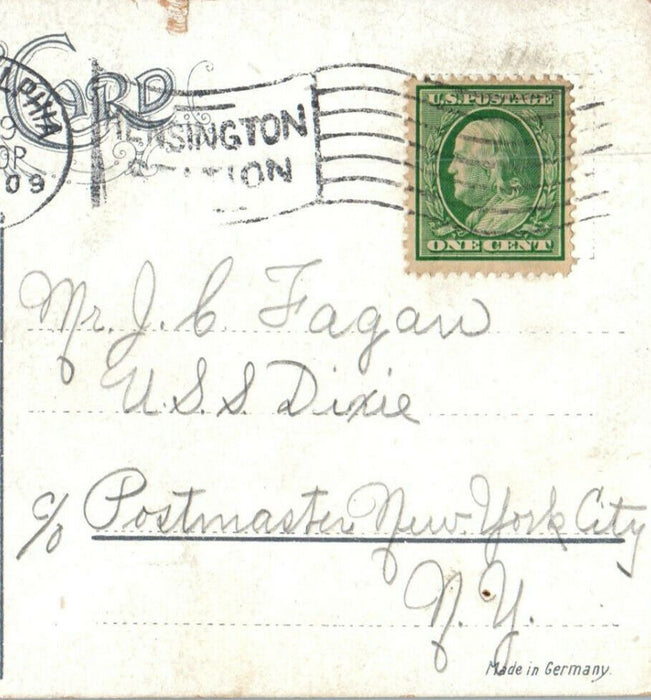 CARD
U.S. POSTAGE
ONE CENT
KENSINGTON
STATION
Mr. J. C. Fagan
U.S.S. Dixie
c/o Postmaster New York City
N.Y.
Made in Germany.